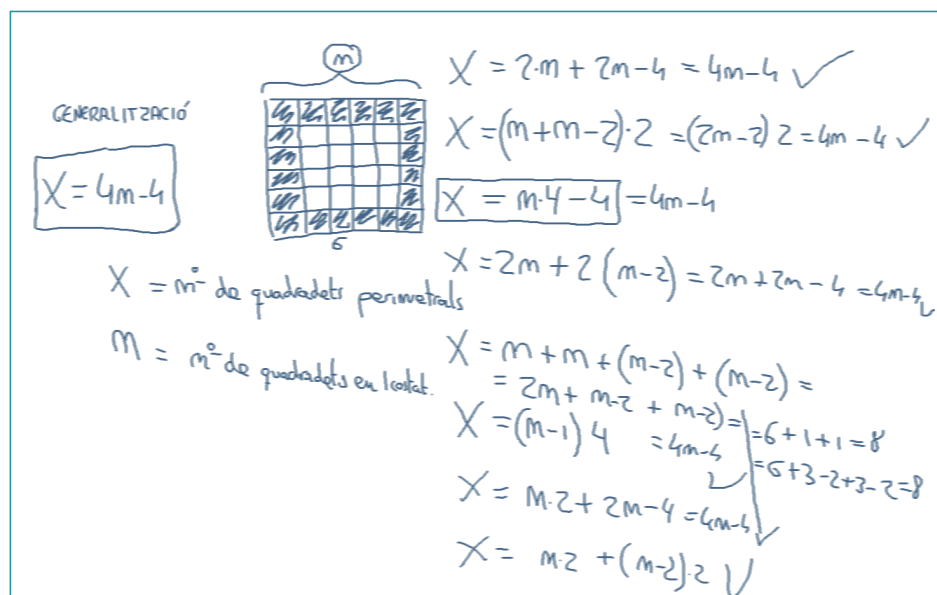 GENERALITZACIÓ
X = 4m-4
m
6
X = nº de quadradets perimetrals
m = nº de quadradets en 1 costat.
X = 2·m + 2m-4 = 4m-4 ✓
X = (m+m-2)·2 = (2m-2) 2 = 4m-4 ✓
X = m·4-4 = 4m-4
X = 2m + 2 (m-2) = 2m + 2m - 4 = 4m-4 ✓
X = m + m + (m-2) + (m-2) =
= 2m + m-2 + m-2) =
= 6+1+1 = 8
= 6+3-2+3-2=8
X = (m-1) 4 = 4m-4 ✓
X = m·2 + 2m-4 = 4m-4 ✓
X = m·2 + (m-2)·2 ✓